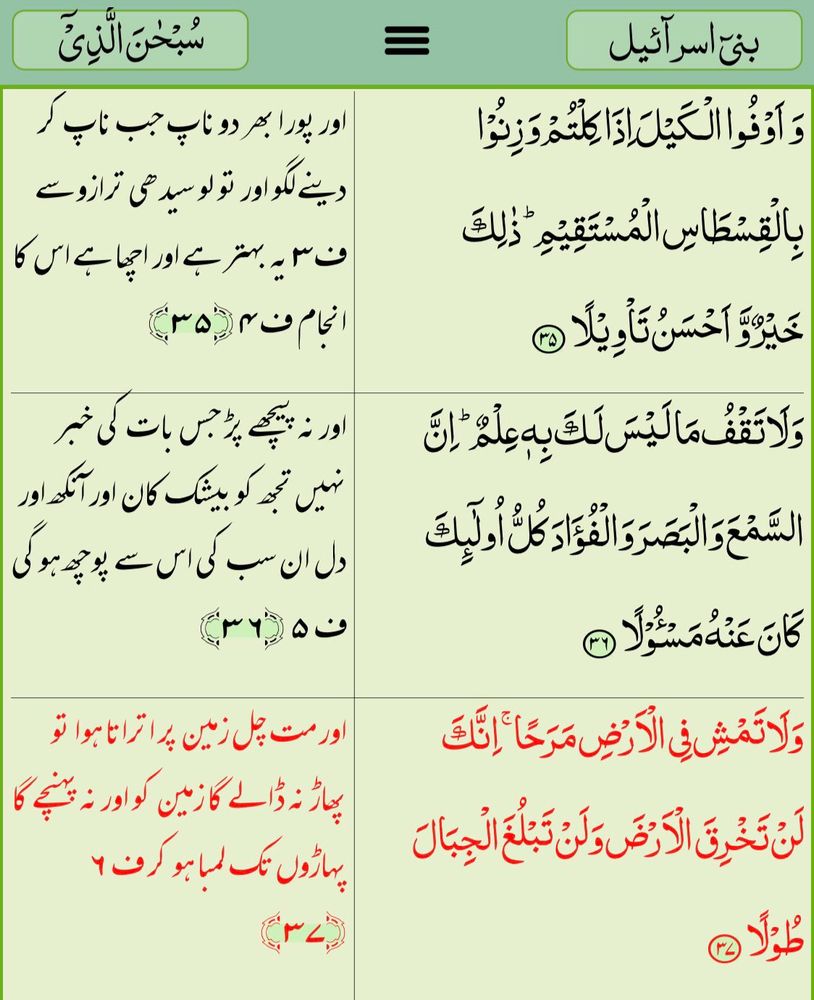 بنیٓ اسرآئیل
سُبْحٰنَ الَّذِیْٓ
وَ اَوْفُوا الْكَیْلَ اِذَا كِلْتُمْ وَ زِنُوْا
بِالْقِسْطَاسِ الْمُسْتَقِیْمِؕ ذٰلِكَ
خَیْرٌ وَّ اَحْسَنُ تَاْوِیْلًا ۳۵
اور پورا بھر دو ناپ جب ناپ کر
دینے لگو اور تولو سیدھی ترازو سے
ف ۳ یہ بہتر ہے اور اچھا ہے اس کا
انجام ف ۴ ﴿۳۵﴾
وَ لَا تَقْفُ مَا لَیْسَ لَكَ بِهٖ عِلْمٌؕ اِنَّ
السَّمْعَ وَ الْبَصَرَ وَ الْفُؤَادَ كُلُّ اُولٰٓىِٕكَ
كَانَ عَنْهُ مَسْـُٔوْلًا ۳۶
اور نہ پیچھے پڑ جس بات کی خبر
نہیں تجھ کو بیشک کان اور آنکھ اور
دل ان سب کی اس سے پوچھ ہو گی
ف ۵ ﴿۳۶﴾
وَ لَا تَمْشِ فِی الْاَرْضِ مَرَحًاۚ اِنَّكَ
لَنْ تَخْرِقَ الْاَرْضَ وَ لَنْ تَبْلُغَ الْجِبَالَ
طُوْلًا ۳۷
اور مت چل زمین پر اتراتا ہوا تو
پھاڑ نہ ڈالے گا زمین کو اور نہ پہنچے گا
پہاڑوں تک لمبا ہو کر ف ۶
﴿۳۷﴾